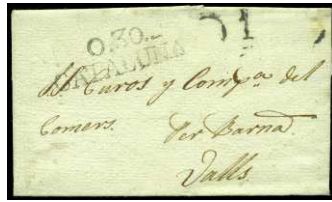 51
0.30.
CATALUÑA
Sres Euros y Compa. del
Comers. Per Barna.
Valls